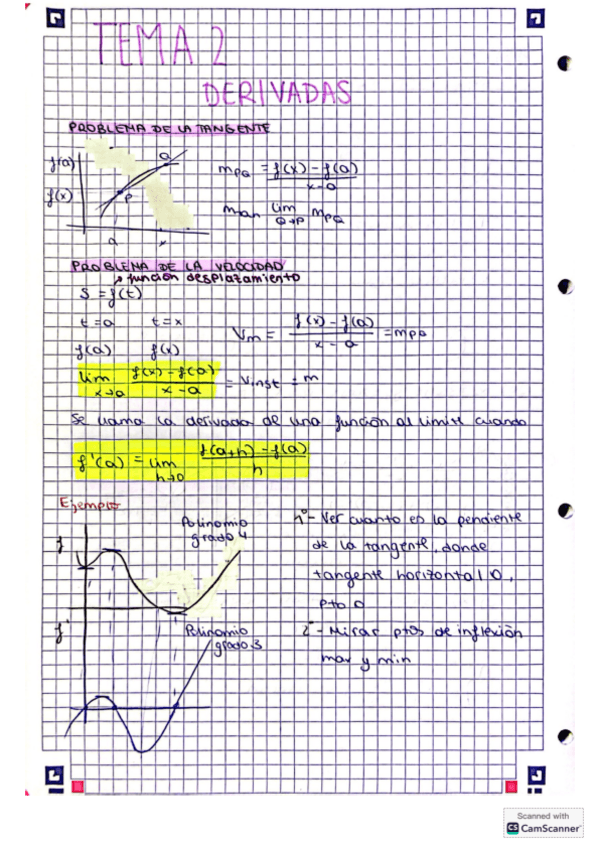 TEMA 2
DERIVADAS
PROBLEMA DE LA TANGENTE
f(a)
f(x)
Q
P
a
x
mPQ = f(x) - f(a) / x - a
lim Q→P mPQ
PROBLEMA DE LA VELOCIDAD
→ función desplazamiento
S = f(t)
t = a t = x
f(a) f(x)
Vm = f(x) - f(a) / x - a = mPQ
lim x→a f(x) - f(a) / x - a = Vinst = m
Se llama la derivada de una función al límite cuando
f'(a) = lim h→0 f(a+h) - f(a) / h
Ejemplo
f
Polinomio
grado 4
f'
Polinomio
grado 3
1º- Ver cuanto es la pendiente
de la tangente, donde
tangente horizontal 0,
pto 0
2º- Mirar ptos de inflexión
max y min
Scanned with
CS CamScanner